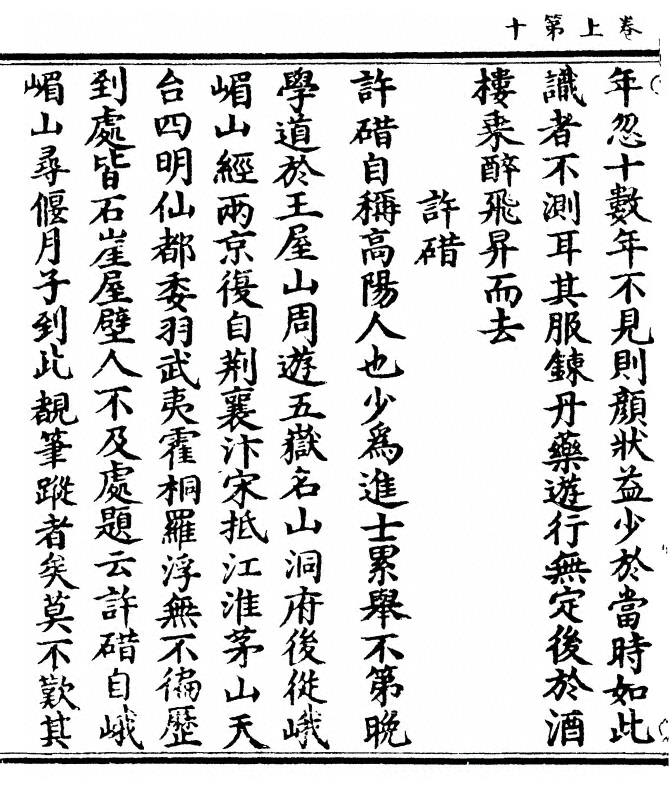 卷上第十
年忽十數年不見則顔狀益少於當時如此
識者不測耳其服錬丹藥遊行無定後於酒
樓乘醉飛昇而去
許碏
許碏自稱高陽人也少爲進士累舉不第晩
學道於王屋山周遊五嶽名山洞府後從峨
嵋山經兩京復自荆襄汴宋抵江淮茅山天
台四明仙都委羽武夷霍桐羅浮無不徧歷
到處皆石崖屋壁人不及處題云許碏自峨
嵋山尋偃月子到此覩筆蹤者矣莫不歎其